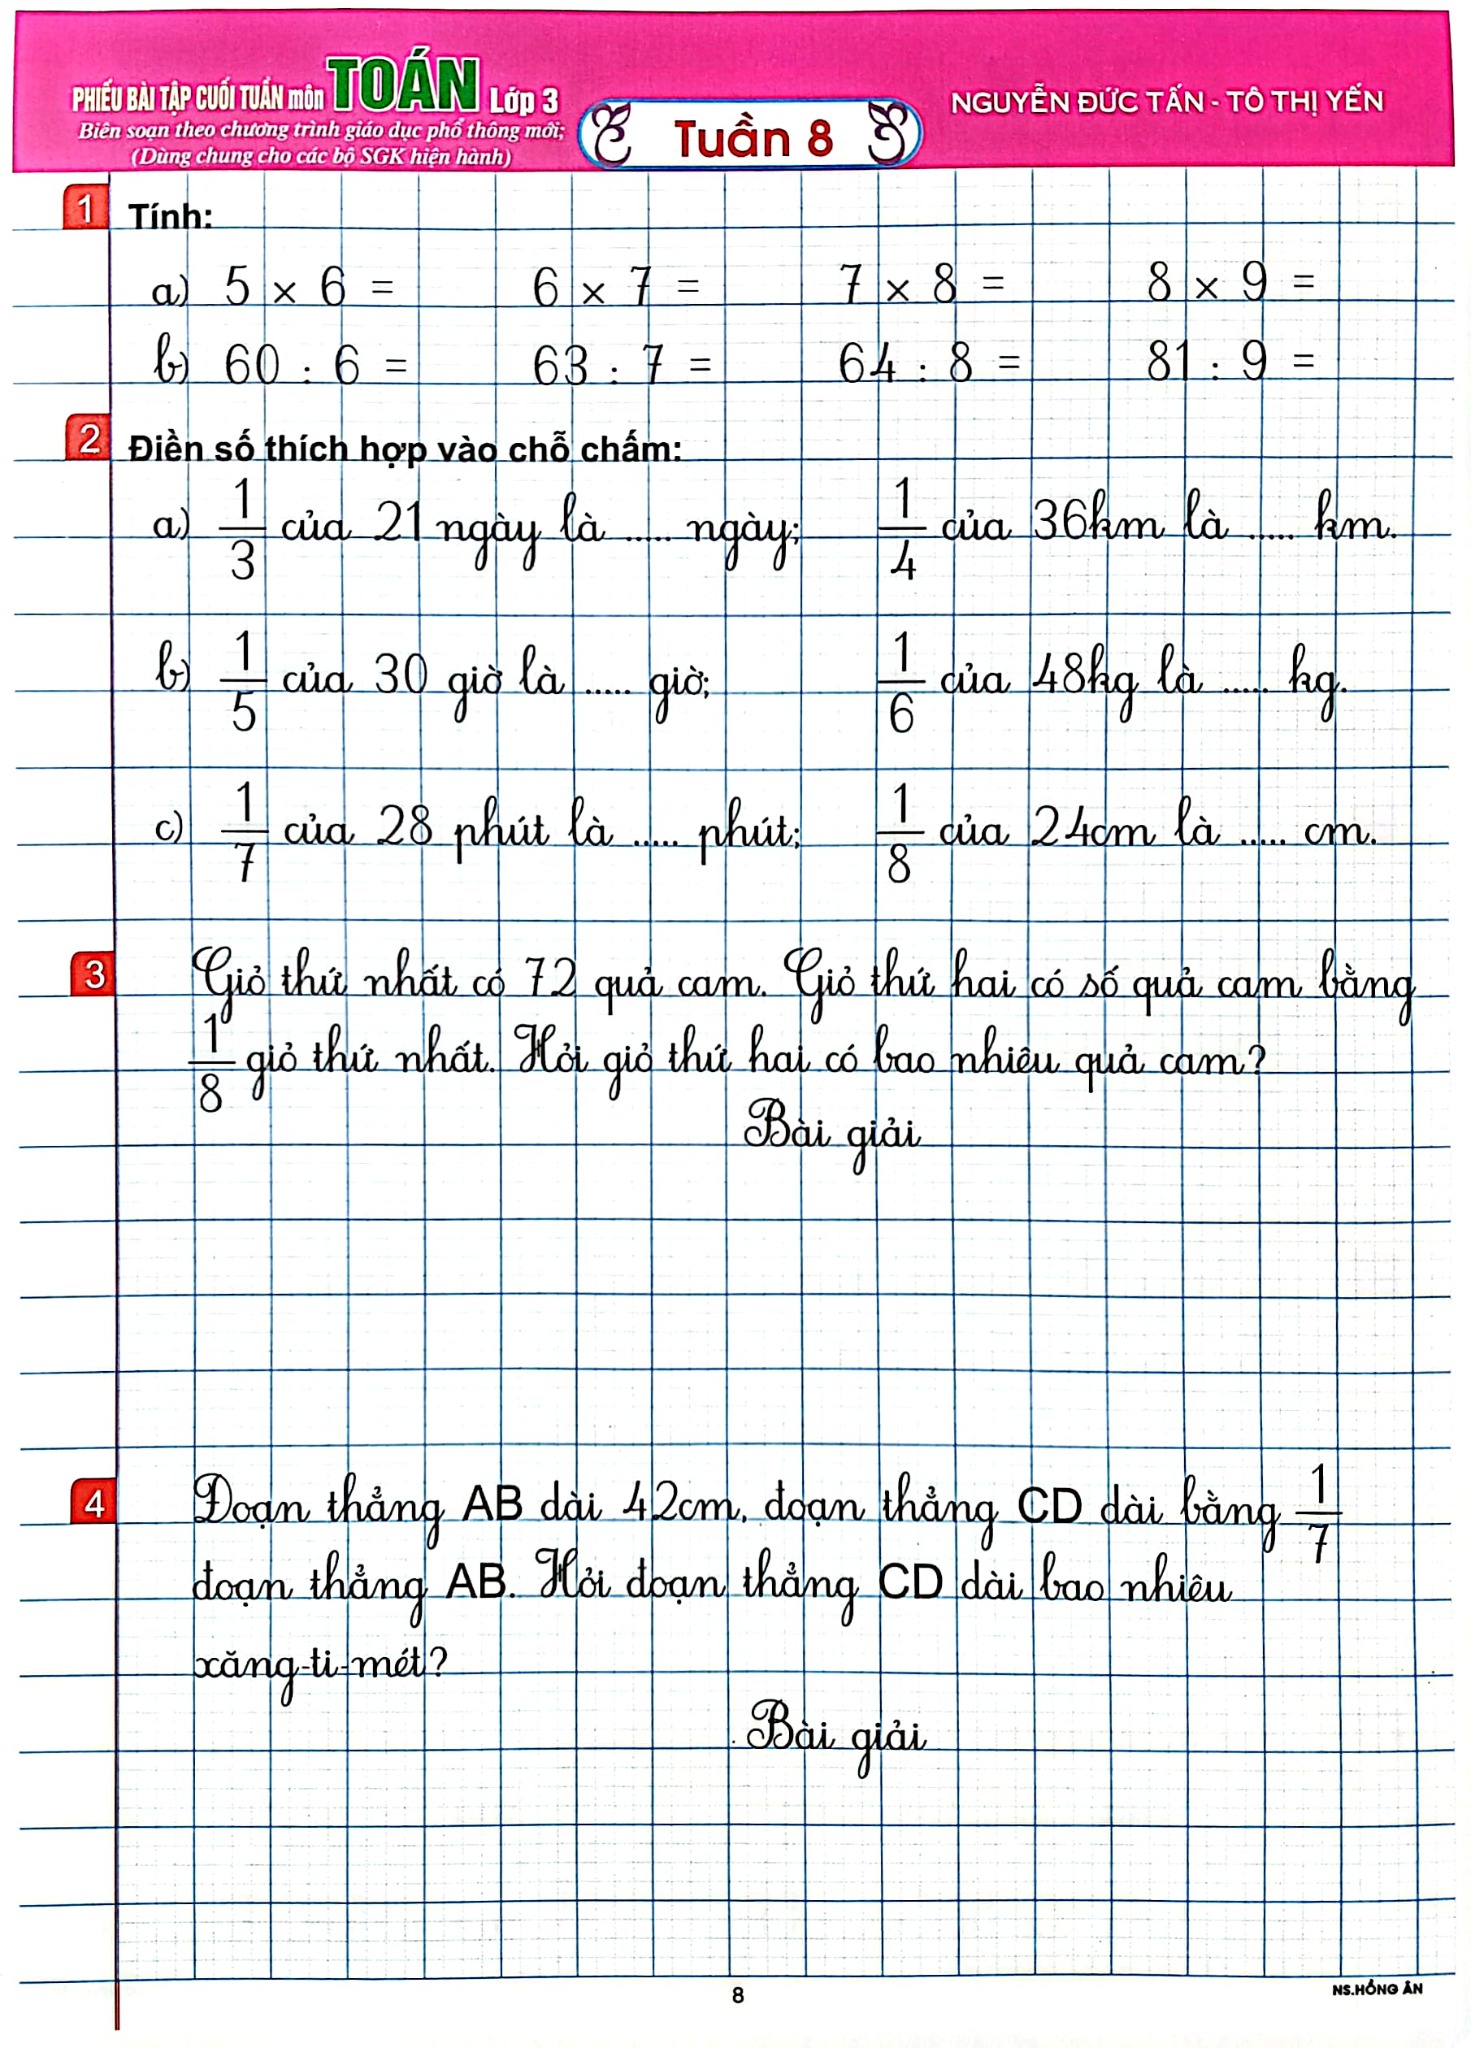 PHIẾU BÀI TẬP CUỐI TUẦN môn TOÁN Lớp 3
Biên soạn theo chương trình giáo dục phổ thông mới;
(Dùng chung cho các bộ SGK hiện hành)
Tuần 8
NGUYỄN ĐỨC TẤN - TÔ THỊ YẾN
1 Tính:
a) 5 × 6 = 6 × 7 = 7 × 8 = 8 × 9 =
b) 60 : 6 = 63 : 7 = 64 : 8 = 81 : 9 =
2 Điền số thích hợp vào chỗ chấm:
a) 1/3 của 21 ngày là ..... ngày; 1/4 của 36km là ..... km.
b) 1/5 của 30 giờ là ..... giờ; 1/6 của 48kg là ..... kg.
c) 1/7 của 28 phút là ..... phút; 1/8 của 24cm là ..... cm.
3 Giỏ thứ nhất có 72 quả cam. Giỏ thứ hai có số quả cam bằng
1/8 giỏ thứ nhất. Hỏi giỏ thứ hai có bao nhiêu quả cam?
Bài giải
4 Đoạn thẳng AB dài 42cm, đoạn thẳng CD dài bằng 1/7
đoạn thẳng AB. Hỏi đoạn thẳng CD dài bao nhiêu
xăng-ti-mét?
Bài giải
8
NS.HỒNG ÂN